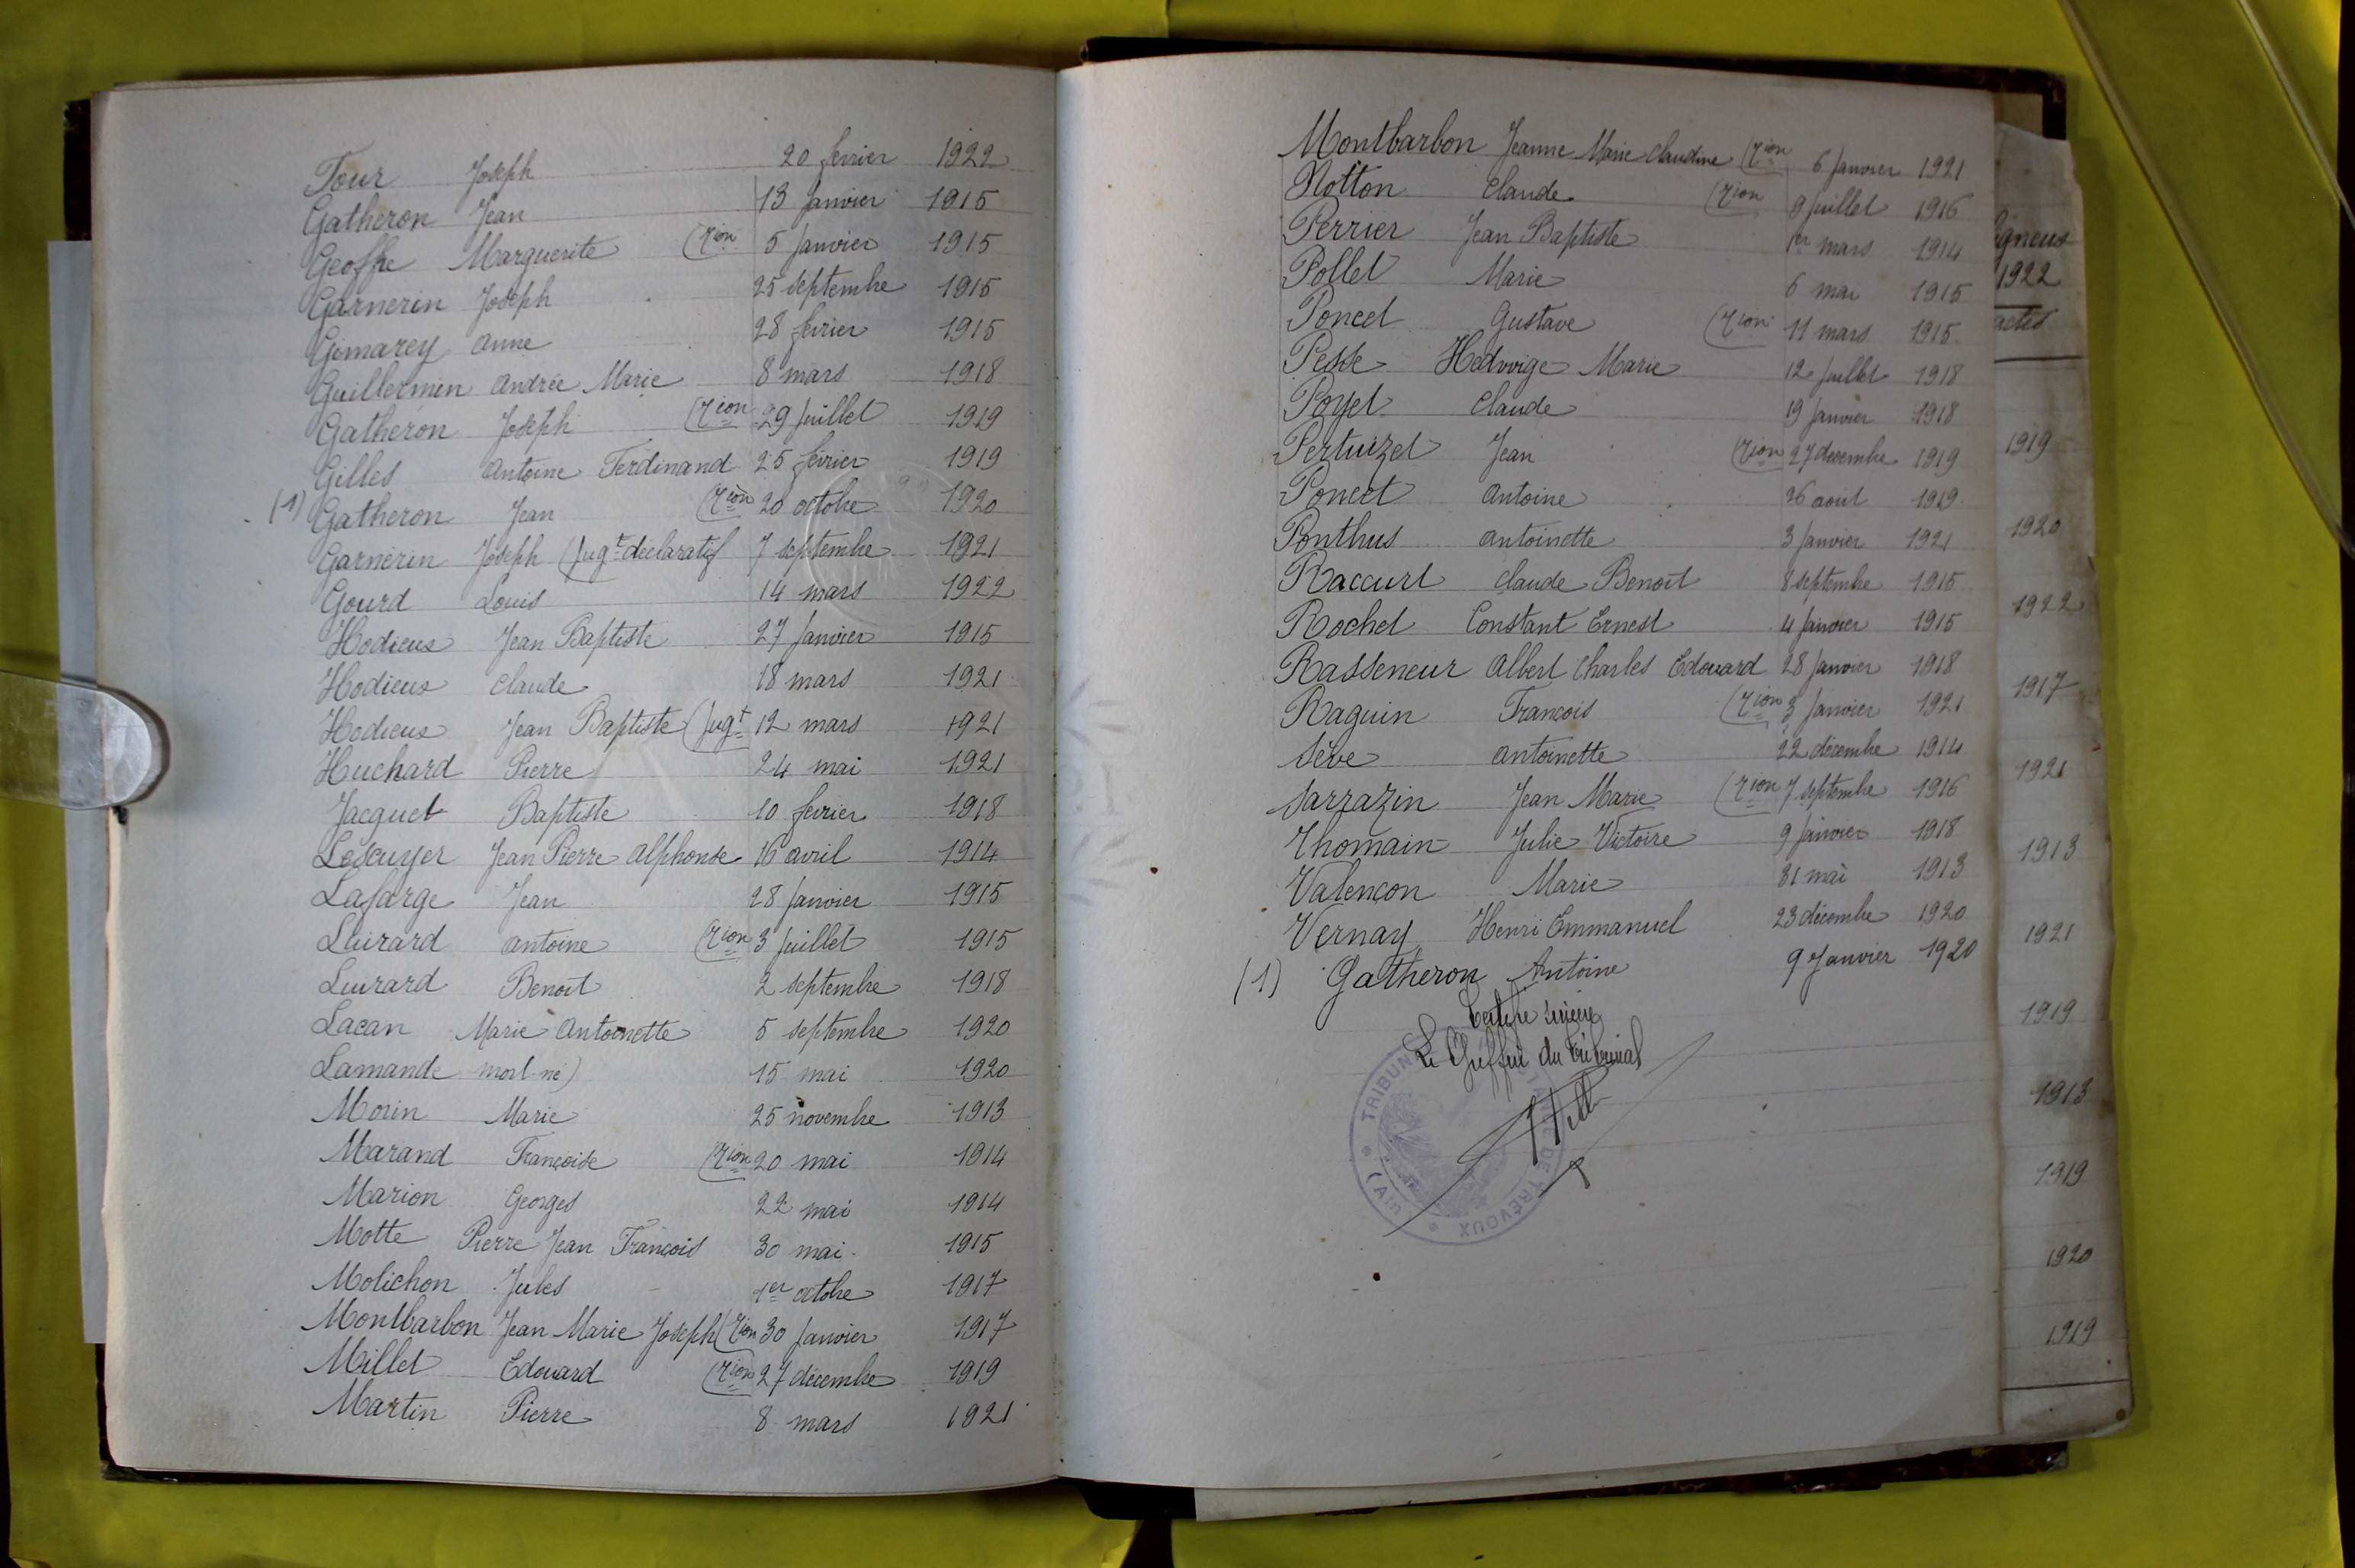 Four Joseph 20 fevrier 1922
Gatheron Jean 13 Janvier 1915
Geoffre Marguerite (Tion 5 Janvier 1915
Garnerin Joseph 25 septembre 1915
Gimarey Anne 28 fevrier 1915
Guillermin Andrée Marie 8 mars 1918
Gatheron Joseph (Tion 29 Juillet 1919
Gilles Antoine Ferdinand 25 fevrier 1919
(1) Gatheron Jean (Tion 20 octobre 1920
Garnerin Joseph (Jugt déclaratif 7 septembre 1921
Gourd Louis 14 mars 1922
Hodieux Jean Baptiste 27 Janvier 1915
Hodieux Claude 18 mars 1921
Hodieux Jean Baptiste (Jugt 12 mars 1921
Huchard Pierre 24 mai 1921
Jacquet Baptiste 10 fevrier 1918
Lescuyer Jean Pierre Alphonse 16 avril 1914
Lafarge Jean 28 Janvier 1915
Luirard Antoine (Tion 3 Juillet 1915
Luirard Benoit 2 septembre 1918
Lacan Marie Antoinette 5 septembre 1920
Lamande mort-né) 15 mai 1920
Morin Marie 25 novembre 1913
Marand Françoise (Tion 20 mai 1914
Marion Georges 22 mai 1914
Motte Pierre Jean François 30 mai 1915
Molichon Jules 1er octobre 1917
Montbarbon Jean Marie Joseph (Tion 30 Janvier 1917
Millet Edouard (Tion 27 décembre 1919
Martin Pierre 8 mars 1921
Montbarbon Jeanne Marie Claudine (Tion 6 Janvier 1921
Notton Claude (Tion 9 Juillet 1916
Perrier Jean Baptiste 1er mars 1914
Pollet Marie 6 mai 1915
Poncet Gustave (Tion 11 mars 1915
Pesse Hedwige Marie 12 Juillet 1918
Poyet Claude 19 Janvier 1918
Pertuizet Jean (Tion 27 decembre 1919
Poncet Antoine 26 aout 1919
Ponthus Antoinette 3 Janvier 1921
Raccurt Claude Benoit 8 septembre 1915
Rochet Constant Ernest 4 Janvier 1915
Rasseneur Albert Charles Edouard 28 Janvier 1918
Raguin François (Tion 3 Janvier 1921
Sève Antoinette 22 décembre 1914
Sarrazin Jean Marie (Tion 7 septembre 1916
Thomain Julie Victoire 9 Janvier 1918
Valençon Marie 31 mai 1913
Vernay Henri Emmanuel 23 décembre 1920
(1) Gatheron Antoine 9 Janvier 1920
Certifié sincère
Le Greffier du Tribunal
TRIBUN DE TRÉVOUX * (Ain) *
gneux
1922
actes
1919
1920
1922
1917
1921
1913
1921
1919
1913
1919
1920
1919